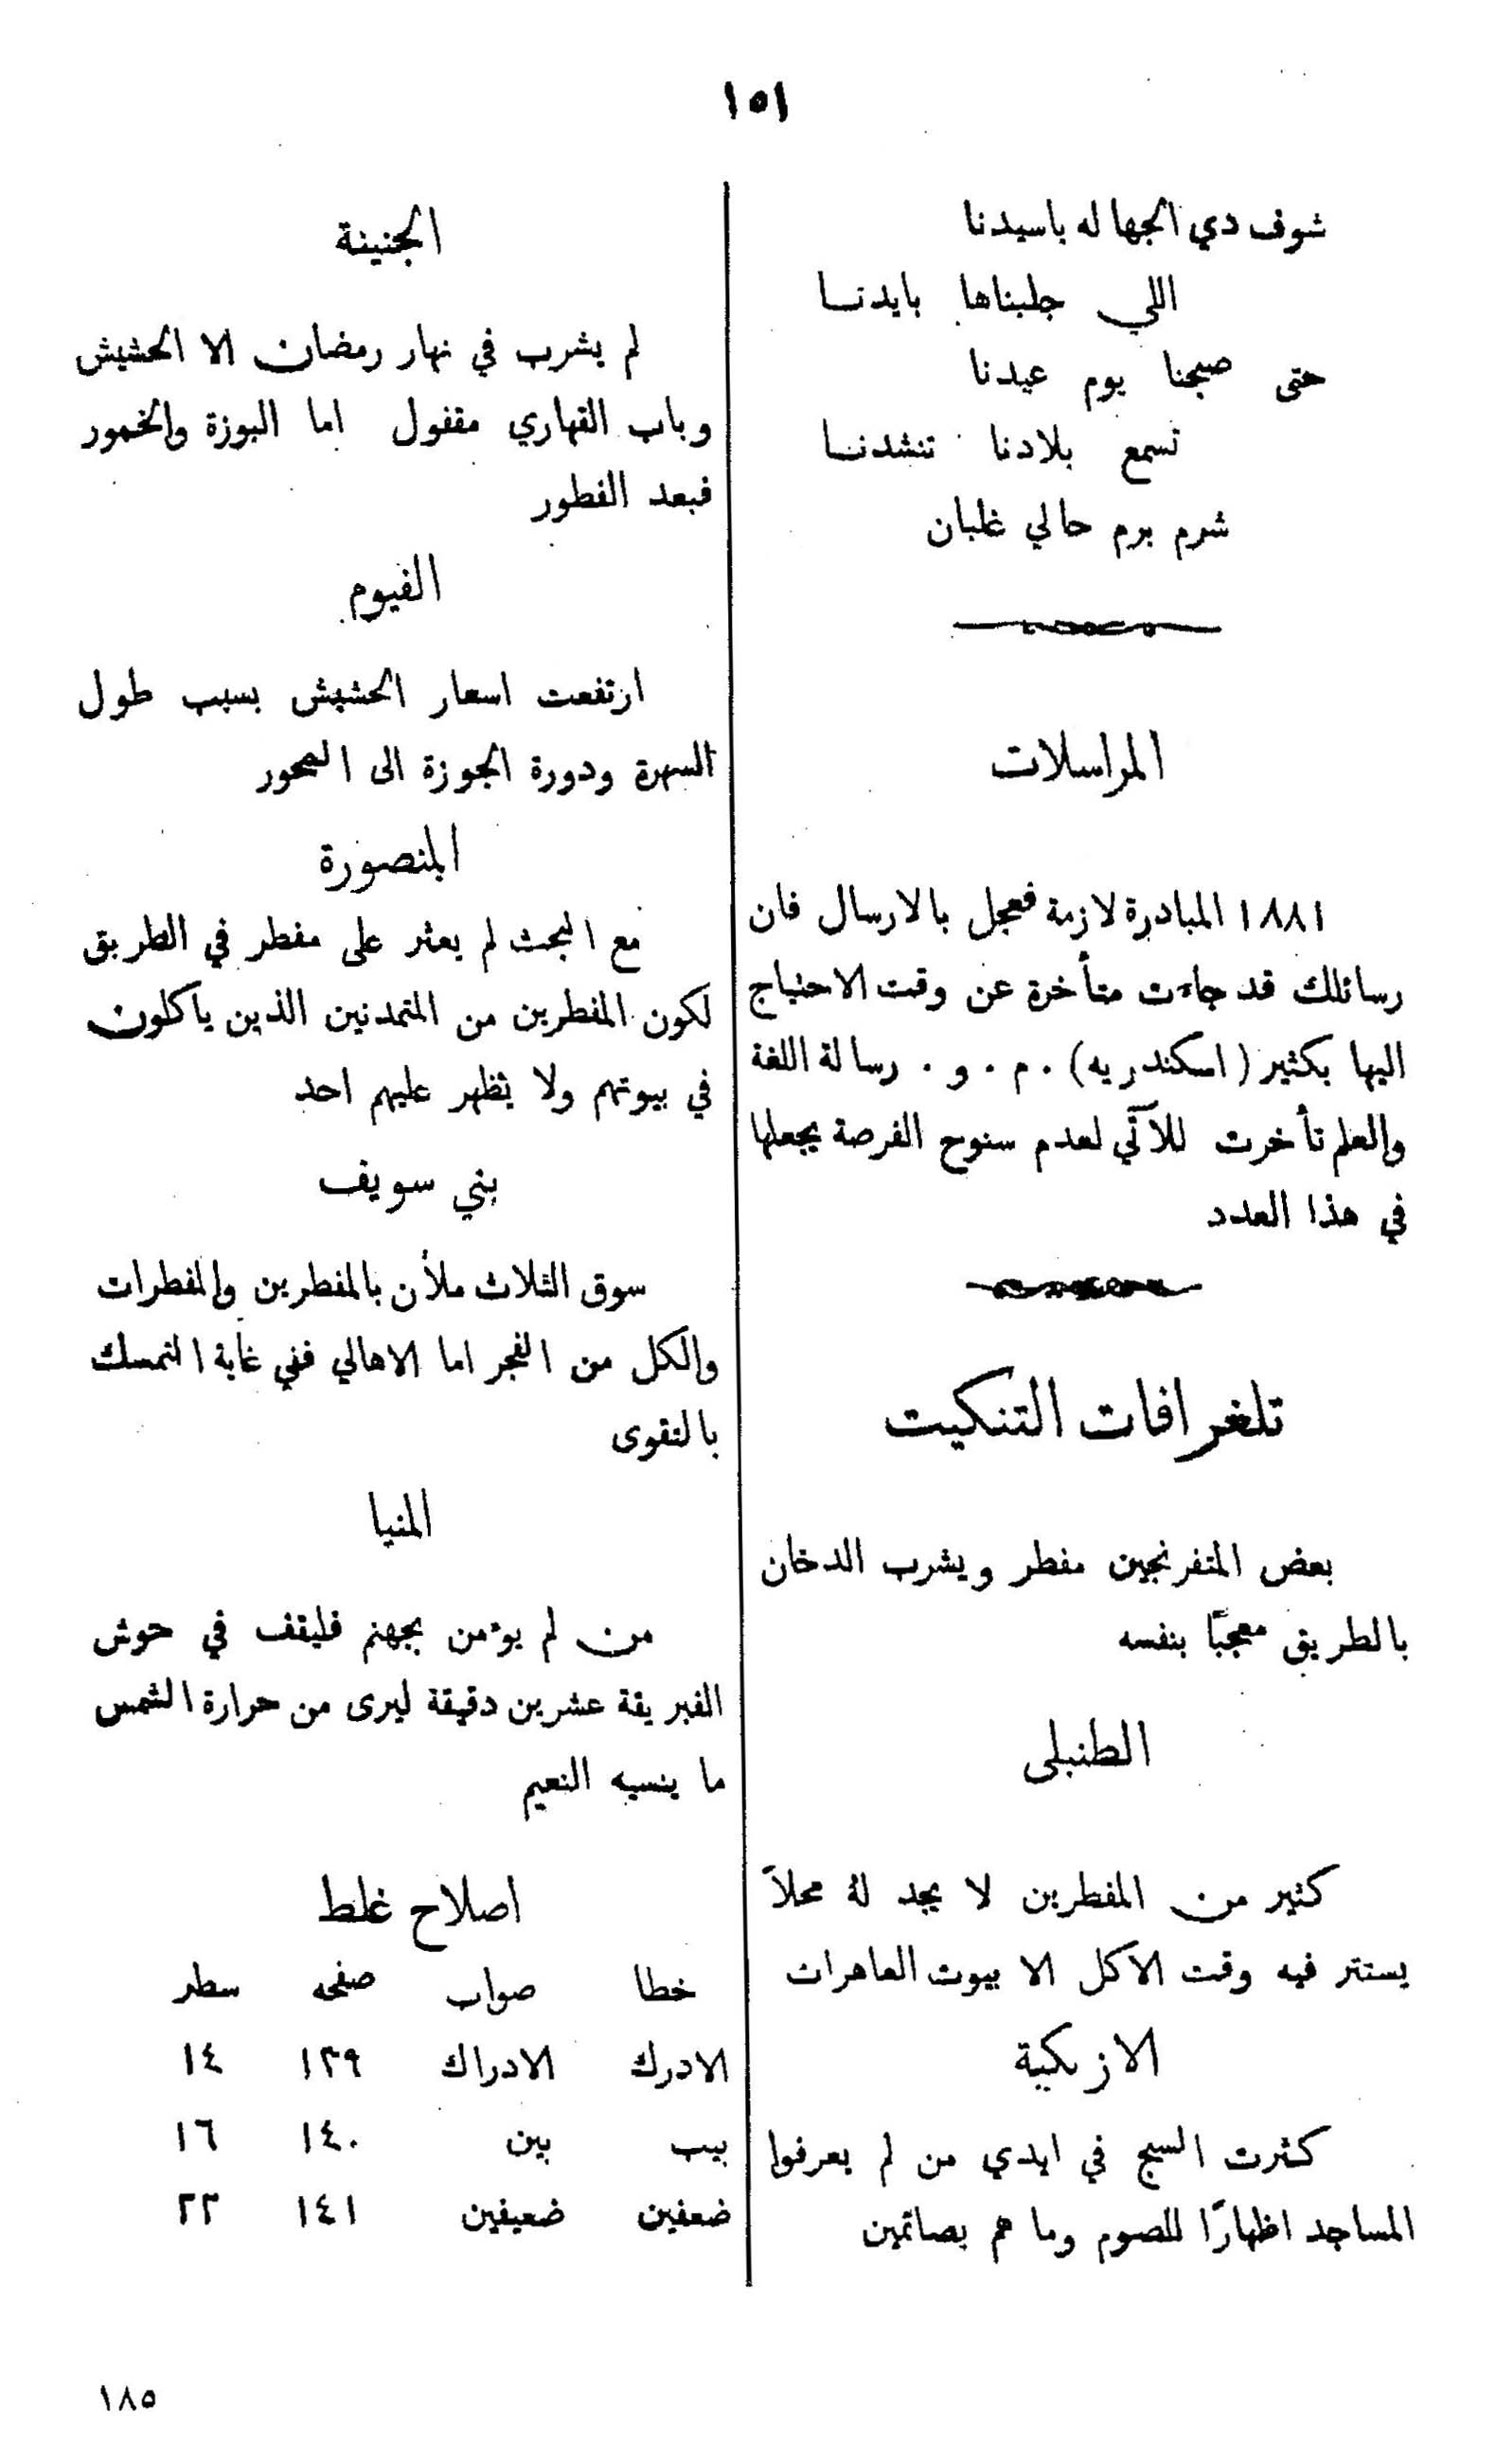 ١٥١
شوف دي الجهاله ياسيدنا
اللي جلبناها بايدنا
حتى صبحنا يوم عيدنا
نسمع بلادنا تنشدنا
شرم برم حالي غلبان
المراسلات
١٨٨١ المبادرة لازمة فعجل بالارسال فان
رسائلك قد جاءت متأخرة عن وقت الاحتياج
اليها بكثير (اسكندريه) . م . و . رسالة اللغة
والعلم تأخرت للآتي لعدم سنوح الفرصة بجعلها
في هذا العدد
تلغرافات التنكيت
بعض المتفرنجين مفطر ويشرب الدخان
بالطريق معجبًا بنفسه
الطنبلى
كثير من المفطرين لا يجد لهُ محلاً
يستتر فيه وقت الاكل الا بيوت العاهرات
الازبكية
كثرت السبح في ايدي من لم يعرفوا
المساجد اظهارًا للصوم وما هم بصائمين
الجنينة
لم يشرب في نهار رمضان الا الحشيش
وباب القهاري مقفول اما البوزة والخمور
فبعد الفطور
الفيوم
ارتفعت اسعار الحشيش بسبب طول
السهرة ودورة الجوزة الى السحور
المنصورة
مع البحث لم يعثر على مفطر في الطريق
لكون المفطرين من المتمدنين الذين ياكلون
في بيوتهم ولا يظهر عليهم احد
بني سويف
سوق الثلاث ملأن بالمفطرين والمفطرات
والكل من الغجر اما الاهالي ففي غاية التمسك
بالتقوى
المنيا
من لم يوءمن بجهنم فليقف في حوش
الفبريقة عشرين دقيقة ليرى من حرارة الشمس
ما ينسيه النعيم
اصلاح غلط
خطا صواب صفحه سطر
الادرك الادراك ١٣٩ ١٤
بيب بين ١٤٠ ١٦
ضعفين ضعيفين ١٤١ ٢٣
١٨٥